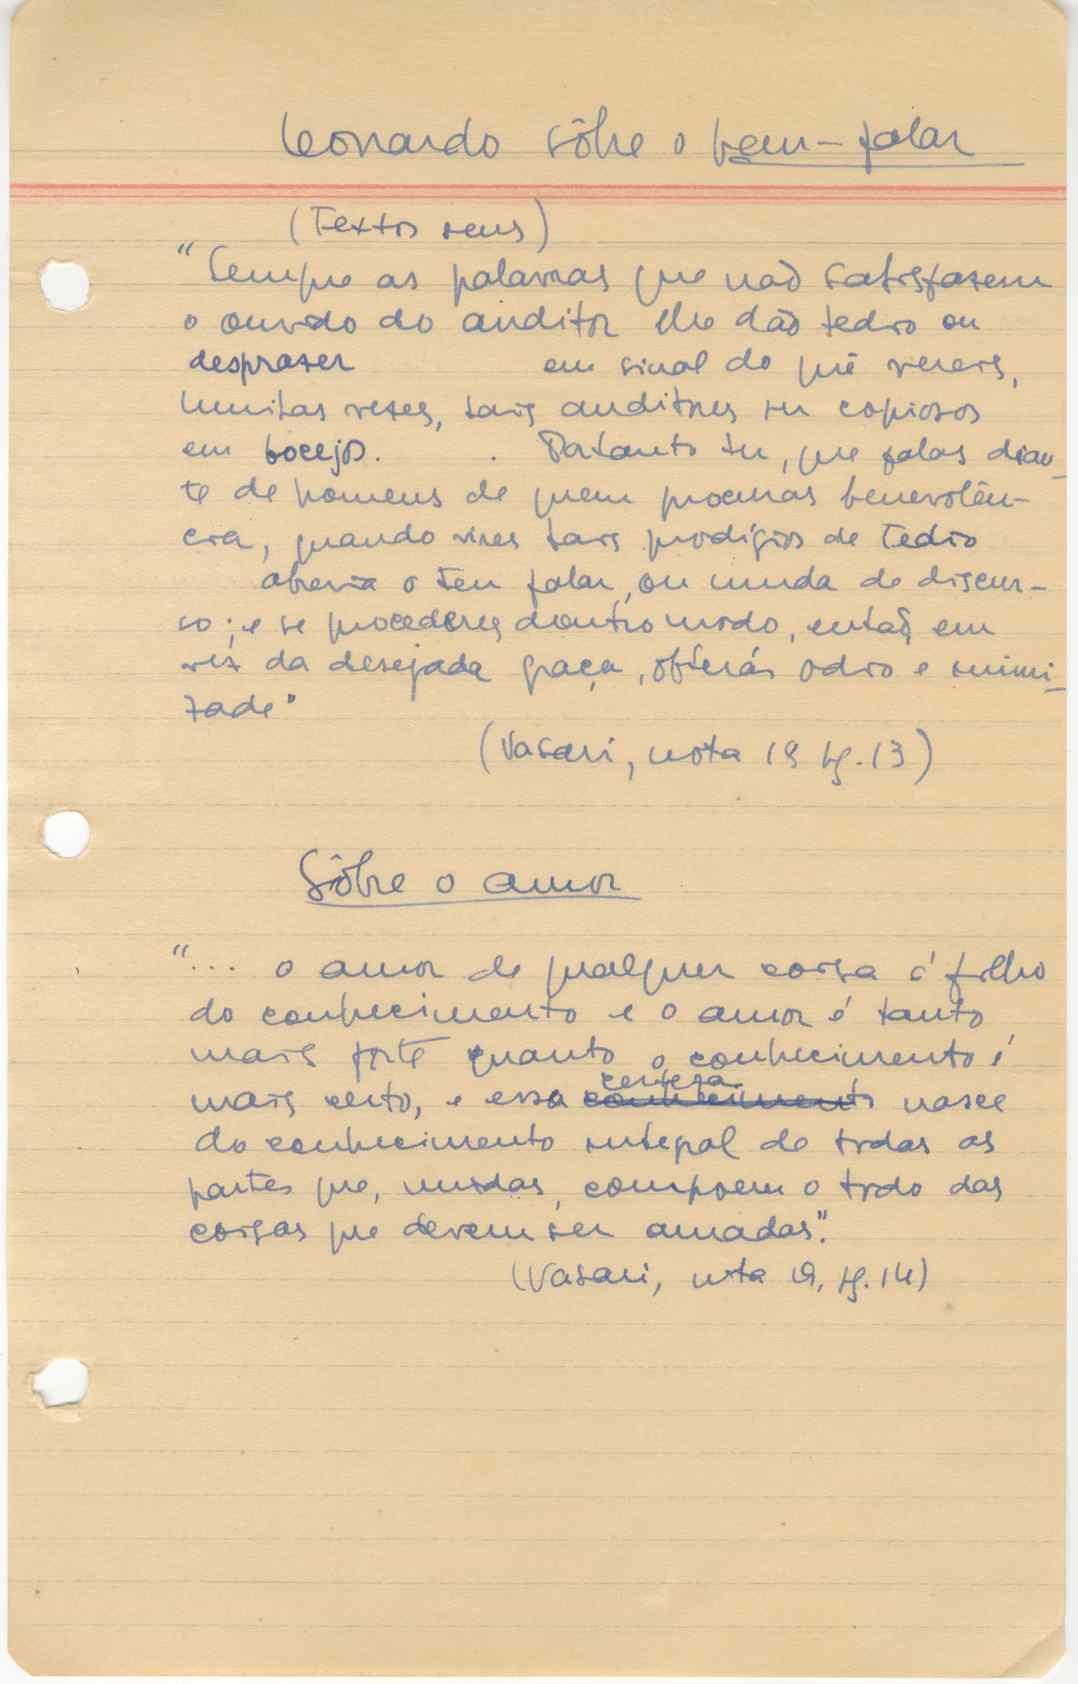 Leonardo sôbre o bem-falar
(Textos seus)
"Sempre as palavras que não satisfazem
o ouvido do auditor lhe dão tedio ou
desprazer em sinal do quê vereis,
muitas vezes, tais auditores ser copiosos
em bocejos. Portanto tu, que falas dian-
te de homens de quem procuras benevolên-
cia, quando vires tais prodígios de tedio
abrevia o teu falar, ou muda de discur-
so; e se procederes doutro modo, então, em
vez da desejada graça, obterás odio e inimi-
zade"
(Vasari, nota 19 pg. 13)
Sôbre o amor
"... o amor de qualquer coisa é filho
do conhecimento e o amor é tanto
mais forte quanto o conhecimento é
certeza
mais certo, e essa conhecimento nasce
do conhecimento integral de todas as
partes que, unidas, compoem o todo das
coisas que devem ser amadas".
(Vasari, nota 19, pg. 14)